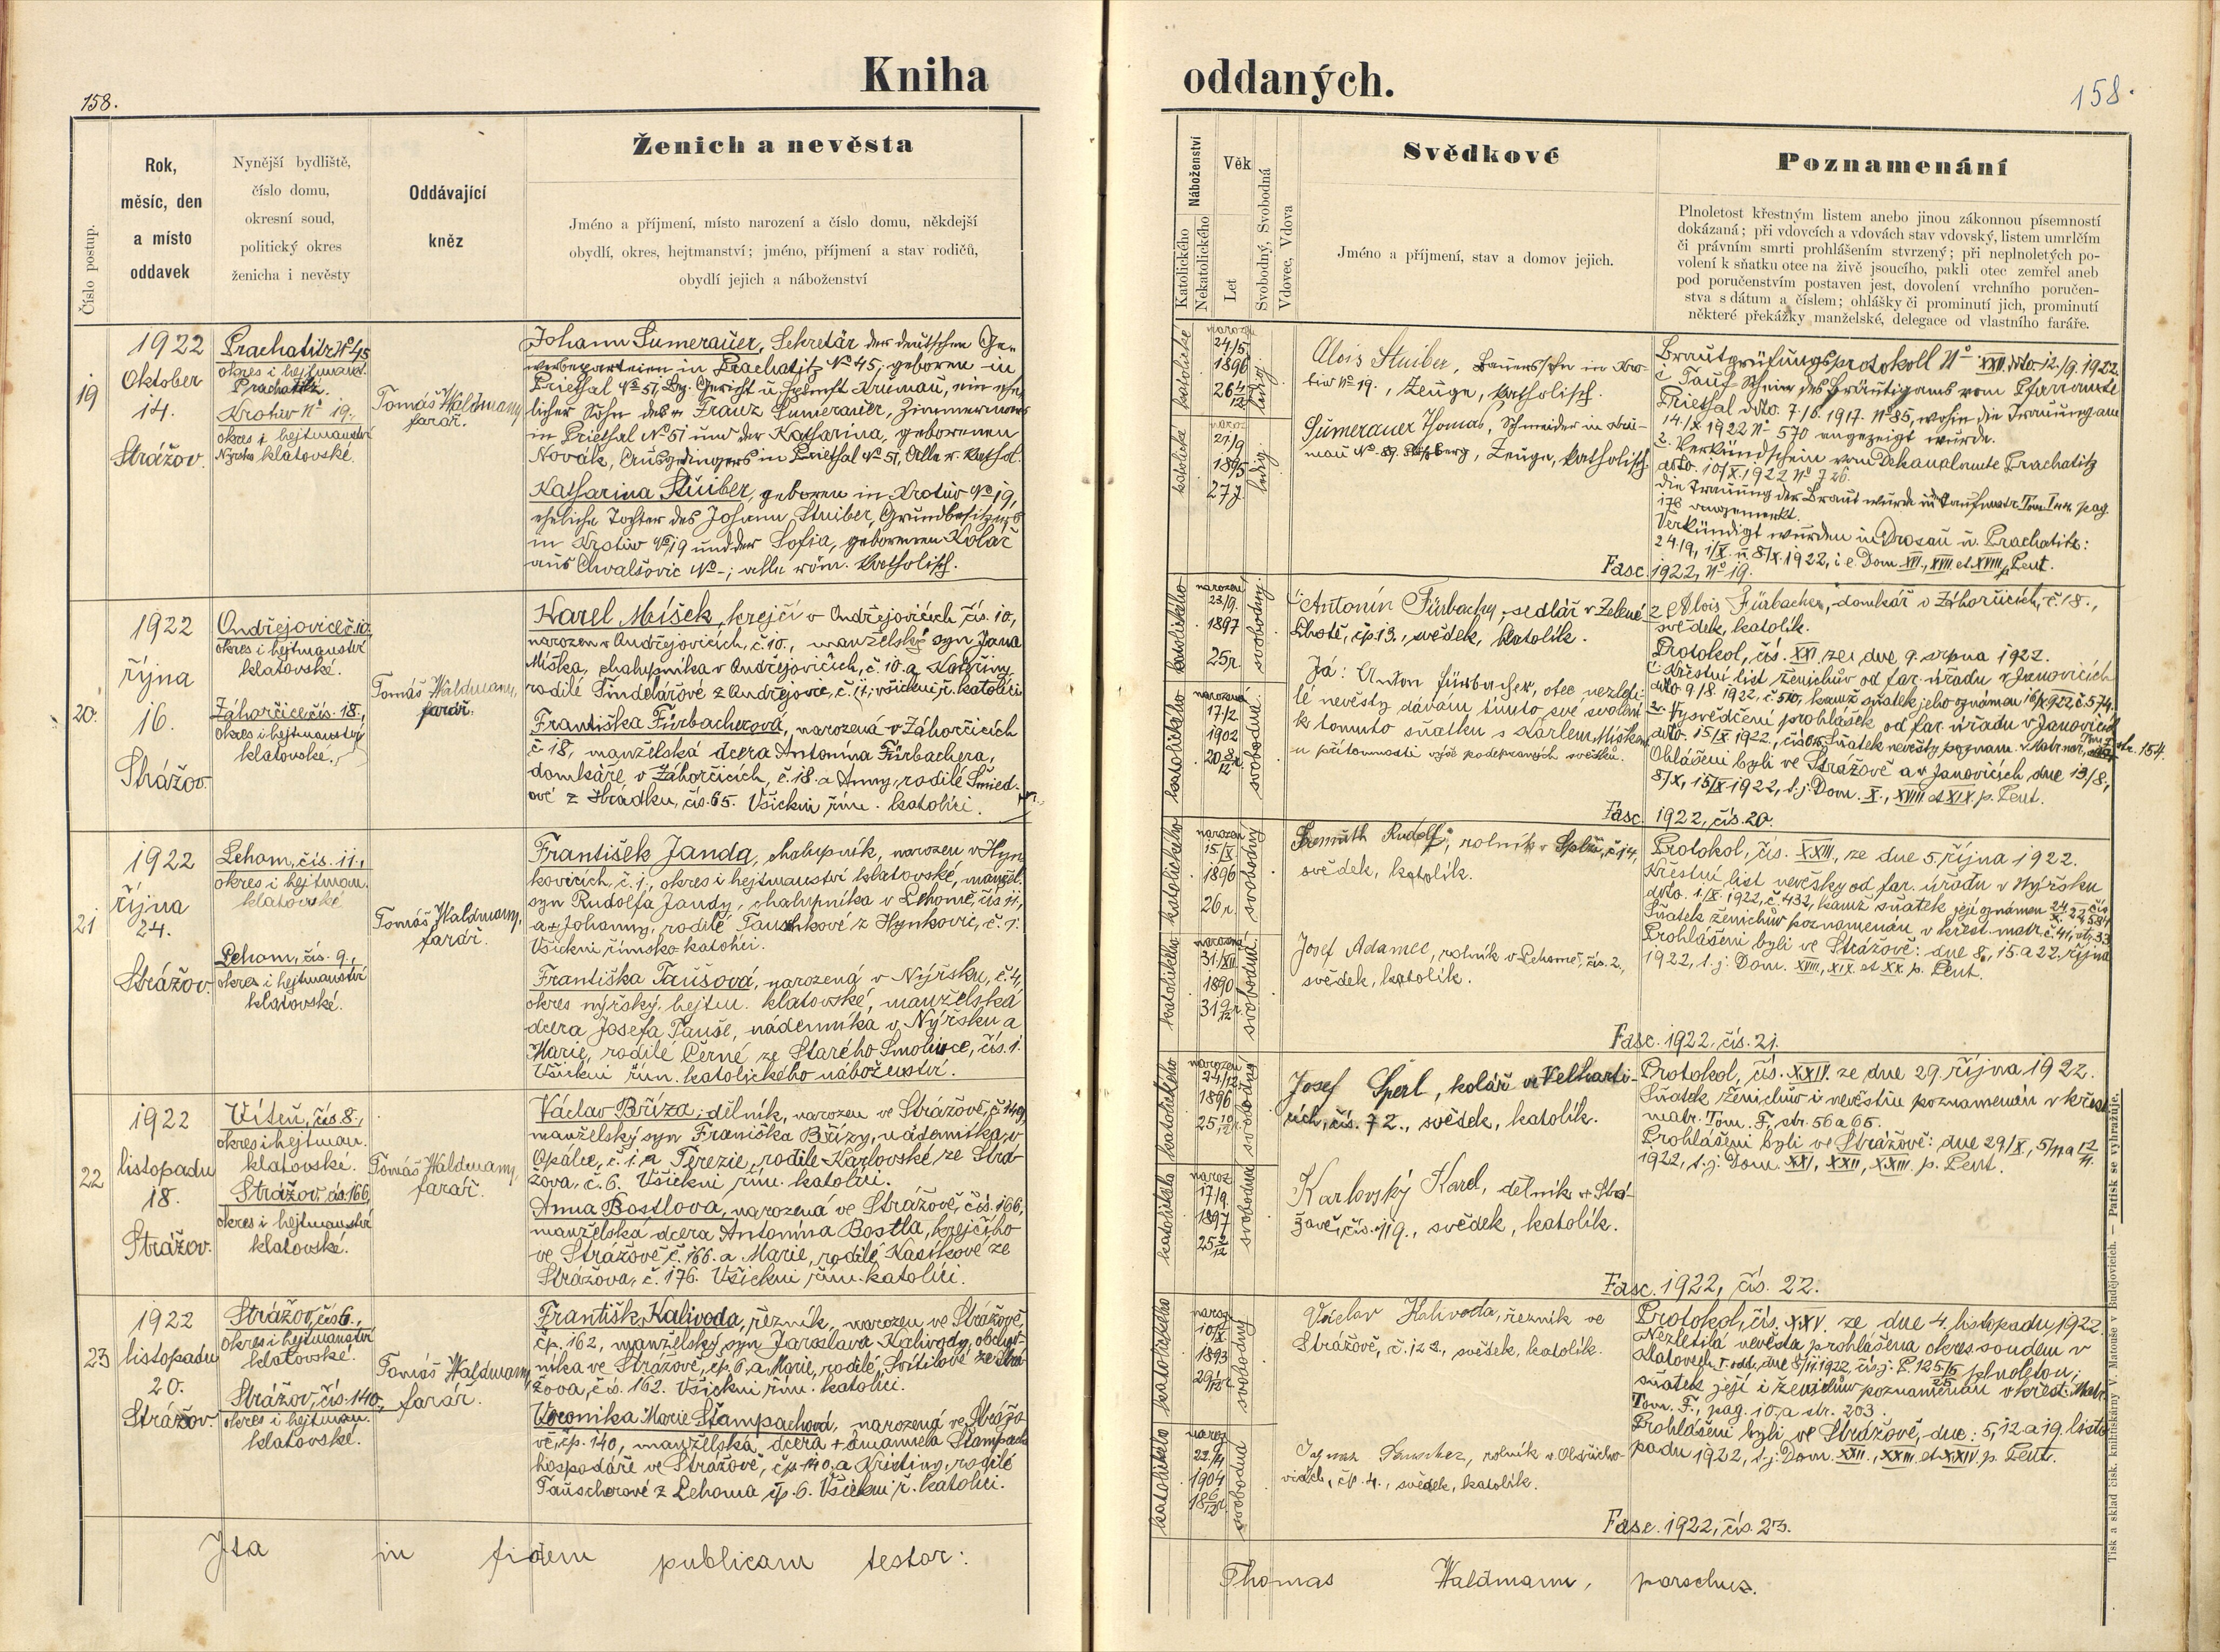 158.
Kniha
oddaných.
158.
Číslo postup.
Rok,
měsíc, den
a místo
oddavek
Nynější bydliště,
číslo domu,
okresní soud,
politický okres
ženicha i nevěsty
Oddávající
kněz
Ženich a nevěsta
Jméno a příjmení, místo narození a číslo domu, někdejší
obydlí, okres, hejtmanství; jméno, příjmení a stav rodičů,
obydlí jejich a náboženství
Náboženství
Katolického
Nekatolického
Věk
Let
Svobodný, Svobodná
Vdovec, Vdova
Svědkové
Jméno a příjmení, stav a domov jejich.
Poznamenání
Plnoletost křestným listem anebo jinou zákonnou písemností
dokázaná; při vdovcích a vdovách stav vdovský, listem umrlčím
či právním smrti prohlášením stvrzený; při neplnoletých po-
volení k sňatku otce na živě jsoucího, pakli otec zemřel aneb
pod poručenstvím postaven jest, dovolení vrchního poručen-
stva s dátum a číslem; ohlášky či prominutí jich, prominutí
některé překážky manželské, delegace od vlastního faráře.
19
1922
Oktober
14.
Strážov.
Prachatitz No 45
okres i hejtmanst.
Prachatitz.
Krotiw No 19.,
okres i hejtmanství
klatovské.
Tomáš Waldmann,
farář.
Johann Sumerauer, Sekretär der deutschen Ge-
werbeparteien in Prachatitz No 45, geboren in
Priethal No 51, Bez. Gericht u. Krumau, ein ehe-
licher Sohn des Franz Sumerauer, Zimmermanns
in Priethal No 51 und der Katharina, geborenen
Novák, Ausgedingers in Priethal No 51, Alle r. kathol.
Katharina Stuiber, geboren in Krotiw No 19,
eheliche Tochter des Johann Stuiber, Grundbesitzers
in Krotiw No 19 und der Sofia, geborenen Kolář
aus Chvalšovic No -; alle röm. katholisch.
katolické
narozen
24/5
1896
26 4/12
ledig
katolické
naroz.
21/9
1895
27 j
ledig
Alois Stuiber, Bauerssohn in Kro-
tiw No 19., Zeuge, katholisch.
Sumerauer Thomas, Schneider in Kru-
mau No 89, Zeuge, katholisch
Brautprüfungsprotokoll No XXII. dto 12/9. 1922.
Taufschein des Bräutigams vom Pfarramte
Priethal ddto. 7./6. 1917. No 85, wohin die Trauung am
14./X 1922 No 570 angezeigt wurde.
2. Verkündschein vom Dekanalamte Prachatitz
ddto. 10/X. 1922 No 726.
die Trauung der Braut wurde in Taufmatr. Tom. I pag.
176 angemerkt.
Verkündigt wurden in Drosau u. Prachatitz:
24./9, 1/X. u 8/X. 1922, i. e. Dom XVI., XVII et XVIII p. Pent.
Fasc. 1922, No 19.
20.
1922
října
16.
Strážov.
Ondřejovice č. 10,
okres i hejtmanství
klatovské.
Záhorčice čís. 18.,
okres i hejtmanství
klatovské.
Tomáš Waldmann,
farář.
Karel Míšek, krejčí v Ondřejovicích, čís. 10,
narozen v Ondřejovicích, č. 10., manželský syn Jana
Míška, chalupníka v Ondřejovicích, č. 10. a Kateřiny,
rodilé Šindelářové z Ondřejovic, č. 11; všickni ř. katolíci
Františka Fürbacherová, narozená v Záhorčicích
č. 18, manželská dcera Antonína Fürbachera,
domkáře v Záhorčicích, č. 18. a Anny, rodilé Šmied-
ové z Hrádku, čís. 65. Všickni řím. katolíci.
katolického
narozen
23/9.
1897
25 r.
svobodný.
katolického
narozená
17/2
1902
20 8/12 r.
svobodná.
Antonín Fürbacher, sedlář v Zelené
Lhotě, čp. 13., svědek, katolík.
Já: Anton Fürbacher, otec nezleti-
lé nevěsty dávám tímto své svolení
k tomuto sňatku s Karlem Miškem
u přítomnosti výše podepsaných svědků.
2. Alois Fürbacher, domkář v Záhorčicích, č. 18.,
svědek, katolík.
Protokol, čís. XXI. ze dne 9. srpna 1922.
Křestní list ženichův od far. úřadu v Janovicích
ddto 9/8. 1922, č. 510, kamž sňatek jeho oznámen 16/X 922 č. 574.
2. Vysvědčení prohlášek od far. úřadu v Janovicích
ddto. 15/X 1922, Sňatek nevěsty poznam. v Matr. nar., str. 154.
Ohlášeni byli ve Strážově a v Janovicích dne 13/8.,
8/X, 15/X 1922, t. j. Dom. X., XVIII et XIX. p. Pent.
Fasc. 1922, čís. 20.
21
1922
října
24.
Strážov.
Lehom, čís. 11.,
okres i hejtman.
klatovské
Lehom, čís. 9.,
okres i hejtmanství
klatovské.
Tomáš Waldmann,
farář.
František Janda, chalupník, narozen v Hyn-
kovicích, č. 1., okres i hejtmanství klatovské, manžel.
syn Rudolfa Jandy, chalupníka v Lehomě, čís 11,
a Johanny, rodilé z Hynkovic, č. 1.
Všickni římsko katolíci.
Františka Taušová, narozená v Nýrsku, č. 4,
okres nýrský, hejtm. klatovské, manželská
dcera Josefa Tauše, nádenníka v Nýrsku a
Marie, rodilé Černé ze Starého Smolivce, čís. 1.
Všickni řím. katolického náboženství.
katolického
narozen
15/IX
1896
26 r.
svobodný
katolického
narozená
31./XII
1890
31 9/12 r.
svobodná.
Rudolf, rolník v , č 14,
svědek, katolík.
Josef Adamec, rolník v Lehomě, čís. 2.,
svědek, katolík.
Protokol, čís. XXIII, ze dne 5. října 1922.
Křestní list nevěsty od far. úřadu v Nýrsku
ddto. 1./X. 1922, č. 432, kamž sňatek její oznámen 24/X. 22
Sňatek ženichův poznamenán v křest. matr. č. 41, str. 33
Prohlášeni byli ve Strážově: dne 8., 15. a 22. října
1922, t. j. Dom. XVIII, XIX. et XX. p. Pent.
Fasc. 1922, čís. 21.
22
1922
listopadu
18.
Strážov.
Víteň, čís. 8.,
okres i hejtman.
klatovské.
Strážov, čís. 166,
okres i hejtmanství
klatovské.
Tomáš Waldmann,
farář.
Václav Bříza, dělník, narozen ve Strážově, č. 149,
manželský syn Františka Břízy, nádenníka, v
Opálce, č. 1. a Terezie, rodilé Karlovské ze Strá-
žova, č. 6. Všickni řím. katolíci.
Anna Bostlova, narozená ve Strážově, čís. 166,
manželská dcera Antonína Bostla, krejčího
ve Strážově č. 166. a Marie, rodilé Kasíkové ze
Strážova, č. 176. Všickni řím. katolíci.
katolického
narozen
24/12
1896
25 10/12
svobodný
katolického
naroz.
17/9
1897
25 2/12
svobodna
Josef Sperl, kolář ve Velharti-
cích, čís. 72., svědek, katolík.
Karlovský Karel, dělník v Strá-
žově, čís. 119., svědek, katolík.
Protokol, čís. XXIV. ze dne 29. října 1922.
Sňatek ženichův i nevěstin poznamenán v křest
matr. Tom. F, str. 56 a 65.
Prohlášeni byli ve Strážově: dne 29/X, 5/11 a 12/11.
1922, t. j. Dom. XXI, XXII, XXIII. p. Pent.
Fasc. 1922, čís. 22.
23
1922
listopadu
20.
Strážov.
Strážov, čís 6.,
okres i hejtmanství
klatovské.
Strážov, čís. 140.,
okres i hejtman.
klatovské.
Tomáš Waldmann,
farář.
Františk Kalivoda, řezník, narozen ve Strážově,
čp. 162, manželský syn Jaroslava Kalivody, obchod-
níka ve Strážově, čp. 6. a Marie, rodilé Svítilové ze Strá-
žova, čís. 162. Všickni řím. katolíci.
Veronika Marie Štampachová, narozená ve Strážo-
vě, čp. 140, manželská dcera + Emanuela Štampach
hospodáře ve Strážově, čp. 140. a Kristiny, rodilé
Tauscherové z Lehoma čp. 6. Všickni ř. katolíci.
katolického
naroz.
10/IX
1893
29 2/12 r.
svobodný
katolického
naroz.
22/4
1904
18 6/12 r.
svobodna
Václav Kalivoda, řezník ve
Strážově, č. 122., svědek, katolík.
Ignaz Tauscher, rolník v
vicích, čp. 4., svědek, katolík.
Protokol, čís. XXV. ze dne 4. listopadu 1922.
Nezletilá nevěsta prohlášena okres. soudem v
Klatovech, I. odd, dne 8/11. 1922, čís. j. plnoletou;
sňatek její i ženichův poznamenán v křest. Matr.
Tom. F., pag. 10. a str. 203.
Prohlášeni byli ve Strážově, dne: 5, 12 a 19. listo
padu 1922, t. j. Dom. XXII., XXIII et XXIV. p. Pent.
Fasc. 1922, čís. 23.
Ita in fidem publicam testor:
Thomas Waldmann, parochus.
Tisk a sklad čísk. knihtiskárny V. Matoušo v Budějovicích. — Patisk se vyhražuje.